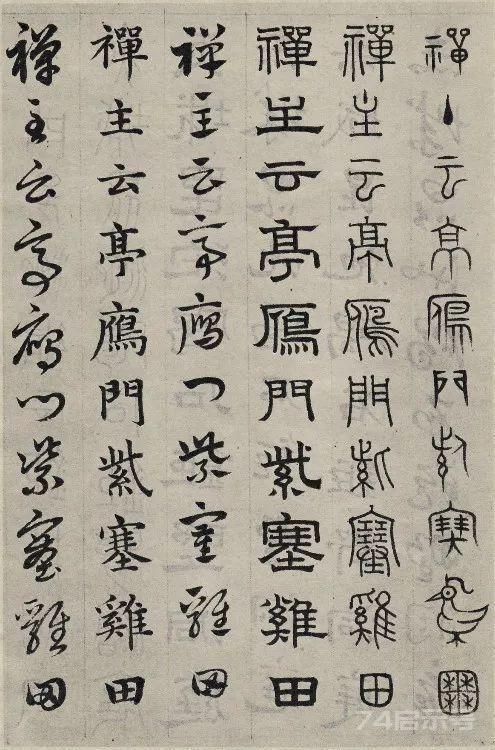 禪主云亭鴈門紫塞雞田
禪主云亭鴈門紫塞雞田
禪主云亭鴈門紫塞雞田
禪主云亭鴈門紫塞雞田
禪主云亭鴈門紫塞雞田
禪主云亭鴈門紫塞雞田
74启示号